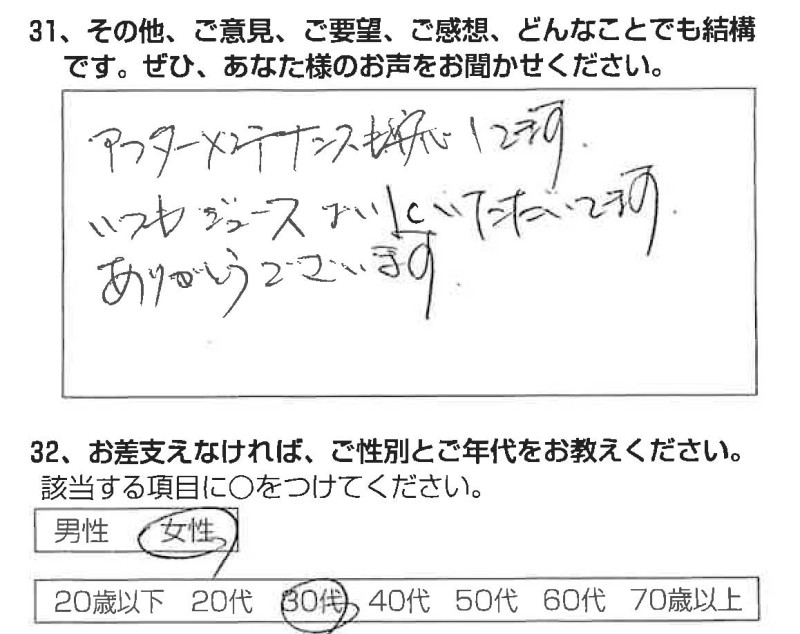 31、その他、ご意見、ご要望、ご感想、どんなことでも結構
です。ぜひ、あなた様のお声をお聞かせください。
アフターメンテナンスも安心してます。
いつもジュース はいしていただいてます。
ありがとうございます。
32、お差支えなければ、ご性別とご年代をお教えください。
該当する項目に○をつけてください。
男性 女性
20歳以下 20代 30代 40代 50代 60代 70歳以上